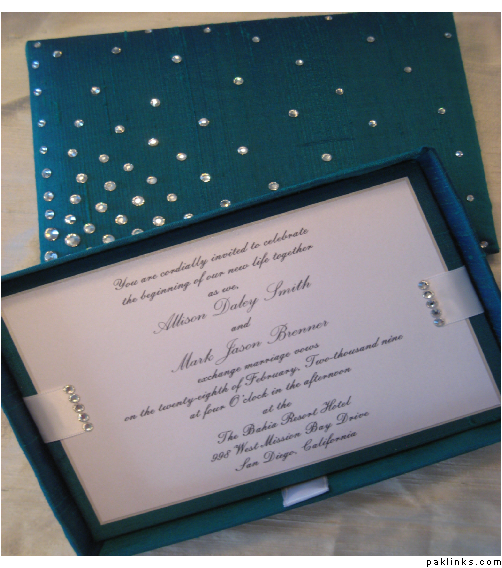 You are cordially invited to celebrate
the beginning of our new life together
as we,
Allison Daley Smith
and
Mark Jason Brenner
exchange marriage vows
on the twenty-eighth of February, Two-thousand nine
at four O'clock in the afternoon
at the
The Bahia Resort Hotel
998 West Mission Bay Drive
San Diego, California
paklinks.com